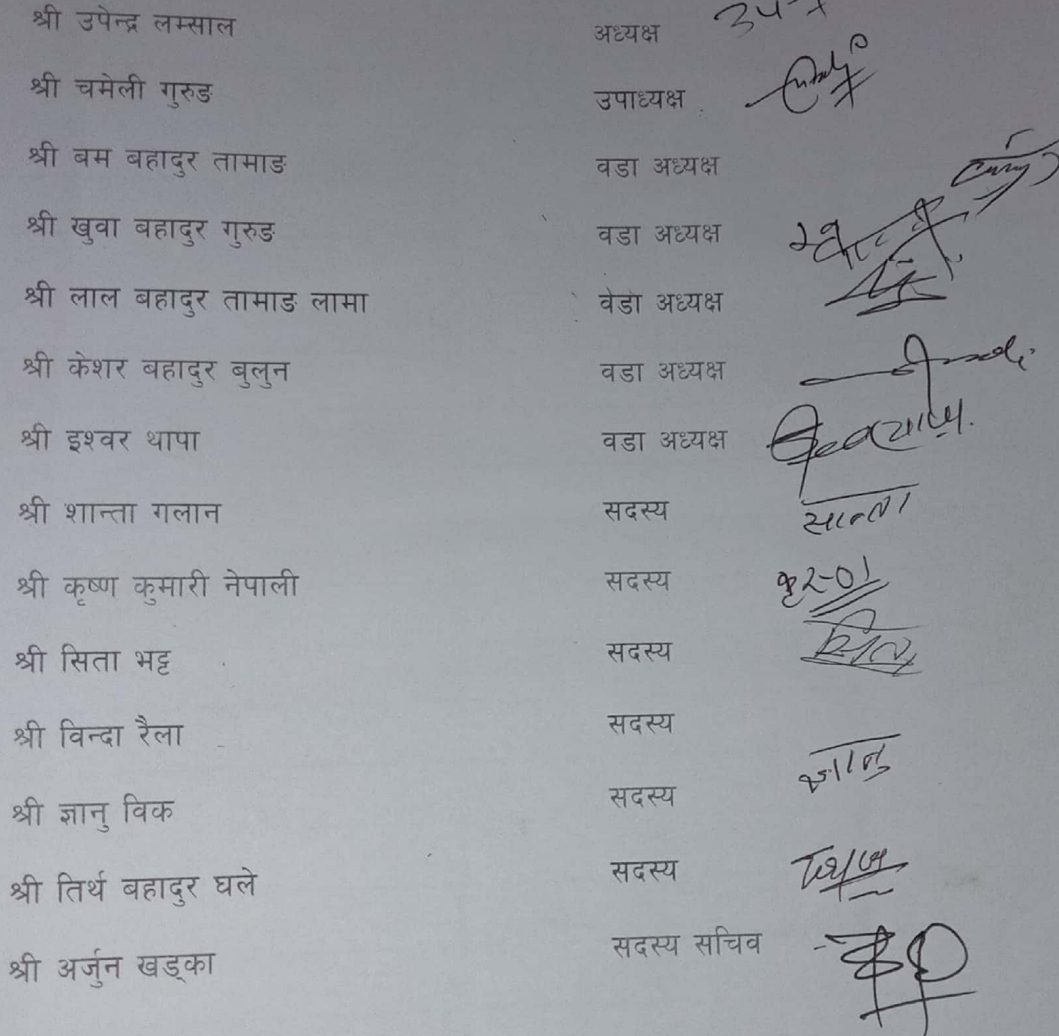 श्री उपेन्द्र लम्साल अध्यक्ष
श्री चमेली गुरुङ उपाध्यक्ष
श्री बम बहादुर तामाङ वडा अध्यक्ष
श्री खुवा बहादुर गुरुङ वडा अध्यक्ष
श्री लाल बहादुर तामाङ लामा वडा अध्यक्ष
श्री केशर बहादुर बुलुन वडा अध्यक्ष
श्री इश्वर थापा वडा अध्यक्ष
श्री शान्ता गलान सदस्य सान्ता
श्री कृष्ण कुमारी नेपाली सदस्य
श्री सिता भट्ट सदस्य
श्री विन्दा रैला सदस्य
श्री ज्ञानु विक सदस्य ज्ञानु
श्री तिर्थ बहादुर घले सदस्य
श्री अर्जुन खड्का सदस्य सचिव